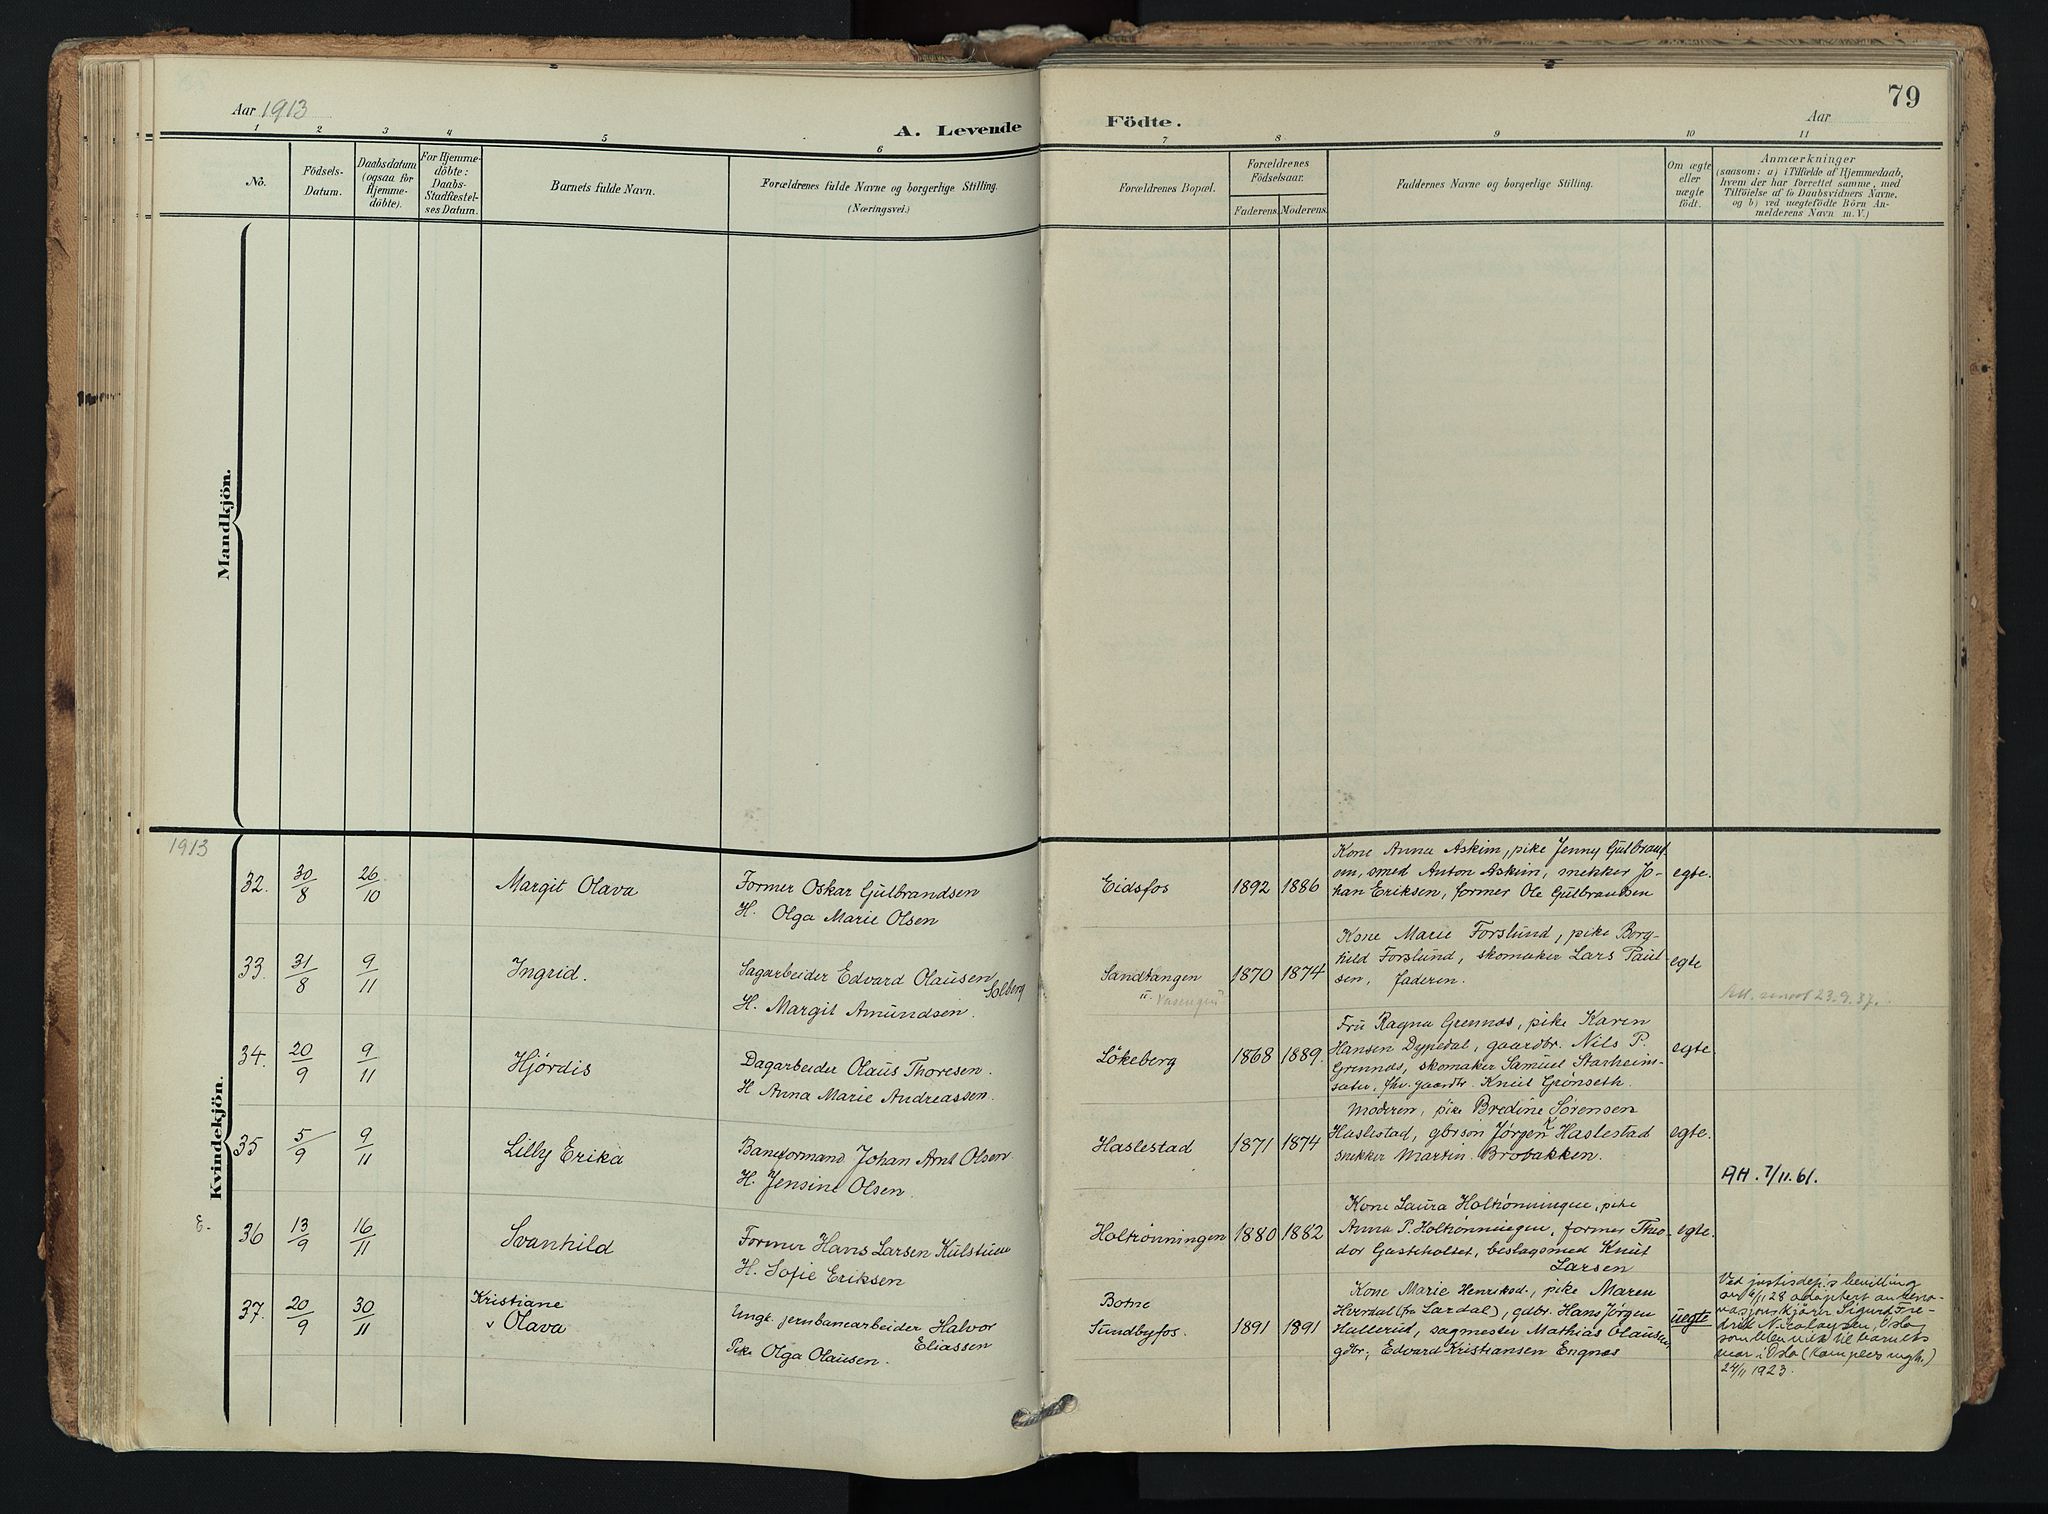 79
Aar 1913
A. Levende Födte.
Aar
1 2 3 4 5 6 7 8 9 10 11
No.
Födsels-
Datum.
Daabsdatum
(ogsaa for
Hjemme-
döbte).
For Hjemme-
döbte:
Daabs-
Stadfæstel-
ses Datum.
Barnets fulde Navn.
Forældrenes fulde Navne og borgerlige Stilling.
(Næringsvei.)
Forældrenes Bopæl.
Forældrenes
Födselsaar.
Faderens. Moderens.
Faddernes Navne og borgerlige Stilling.
Om ægte
eller
uægte
födt.
Anmærkninger
(saasom: a) i Tilfælde af Hjemmedaab,
hvem der har forrettet samme, med
Tilföielse af to Daabsvidners Navne,
og b) ved uægtefödte Börn An-
melderens Navn m. V.)
Mandkjön.
Kvindekjön.
1913
32. 30/8 26/10 Margit Olava
Former Oskar Gulbrandsen
H. Olga Marie Olsen
Eidsfos 1892 1886
Kone Anna Askim, pike Jenny Gulbrand
sen, smed Anton Askim, snekker Jo-
han Eriksen, former Ole Gulbrandsen
egte.
33. 31/8 9/11 Ingrid.
Sagarbeider Edvard Olausen
Solberg
H. Margit Amundsen.
Sandtangen
1870 1874
Kone Marie Forslund, pike Borg-
hild Forslund, skomaker Lars Paul-
sen, faderen.
egte
23.9.37.
34. 20/9 9/11 Hjördis
Dagarbeider Olaus Thoresen.
H. Anna Marie Andreassen.
Lökeberg 1868 1889.
Fru Ragna Grennes, pike Karen
Hansen Dypedal, gaardbr. Nils P.
Grennes, skomaker Samuel Starheim-
sæter, fhv. gaardbr. Knut Grönseth.
egte.
35 5/9 9/11 Lilly Erika
Baneformand Johan Arnt Olsen
H. Jensine Olsen.
Haslestad 1871 1874
Moderen, pike Bredine Sørensen
Haslestad, gbrsön Jørgen K Haslestad
snekker Martin Brobakken.
egte.
AH. 7/11.61.
E.
36 13/9 16/11 Svanhild
Former Hans Larsen Kulstuen
H. Sofie Eriksen
Holtrönningen 1880 1882
Kone Laura Holtrönningen, pike
Anna P. Holtrönningen, former Theo-
dor Gasteholtet, beslagsmed Knut
Larsen
egte.
37. 20/9 30/11 Kristiane
v Olava
Ungk. jernbanearbeider Halvor
Eliassen
Pike Olga Olausen.
Botne
Sundbyfos. 1891 1891
Kone Marie Henriksd., pike Maren
Herrdal (fra Lardal), gdbr. Hans Jørgen
Hallerud, sagmester Mathias Olausen,
gdbr. Edvard Kristiansen Engnes
uegte
Ved justisdep.s bevilling
av 6/11 28 adoptert av reno-
vasjonskjörer Sigurd Fre-
drik Nicolaysen, Oslo
som blev viet til barnets
mor i Oslo (Kampens mgh.)
24/11 1923.